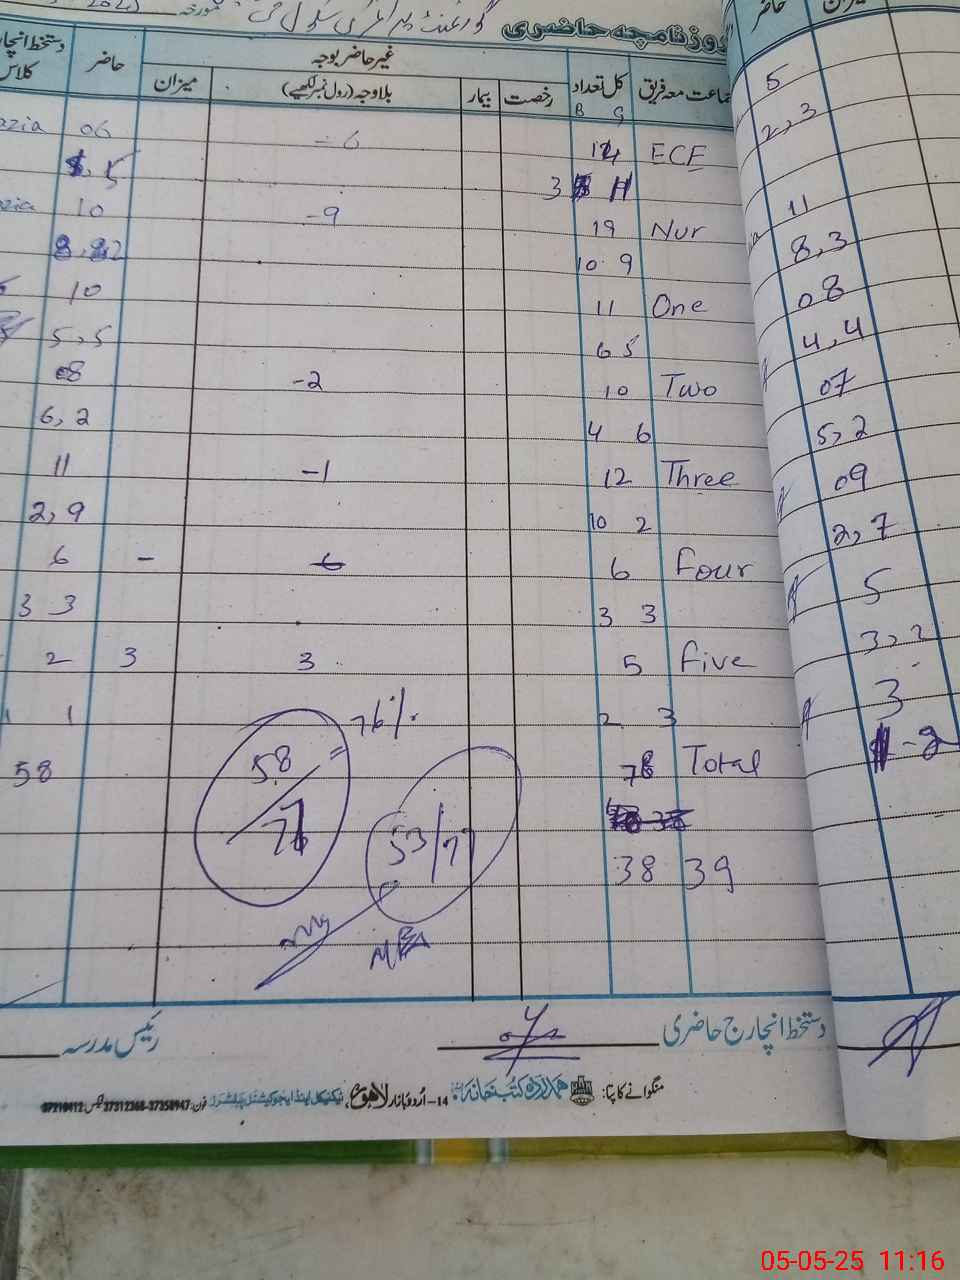 گورنمنٹ پرائمری سکول
روزنامچہ حاضری
جماعت معہ فریق کل تعداد رخصت بیمار غیر حاضر بوجہ حاضر دستخط انچارج کلاس
بلاوجہ (رول نمبر لکھیے) میزان
B G
ECE 14 -6 06
3 11 5
Nur 19 -9 10
10 9 8,2
One 11 10
6 5 5,5
Two 10 -2 08
4 6 6,2
Three 12 -1 11
10 2 2,9
Four 6 6 - 6
3 3 3 3
Five 5 3 3 2
2 3 1 1
Total 78 58
58/76 = 76%
53/77
38 39
MEA
حاضر میزان
5
2,3
11
8,3
08
4,4
07
5,2
09
2,7
5
3,2
3
-2
دستخط انچارج حاضری
رئیس مدرسہ
منگوانے کا پتا: ہمدرد کتب خانہ 14-اُردو بازار لاہور، ٹیکنیکل اینڈ ایجوکیشنل پبلشرز فون: 37312368-37358947 فیکس: 37210412
05-05-25 11:16